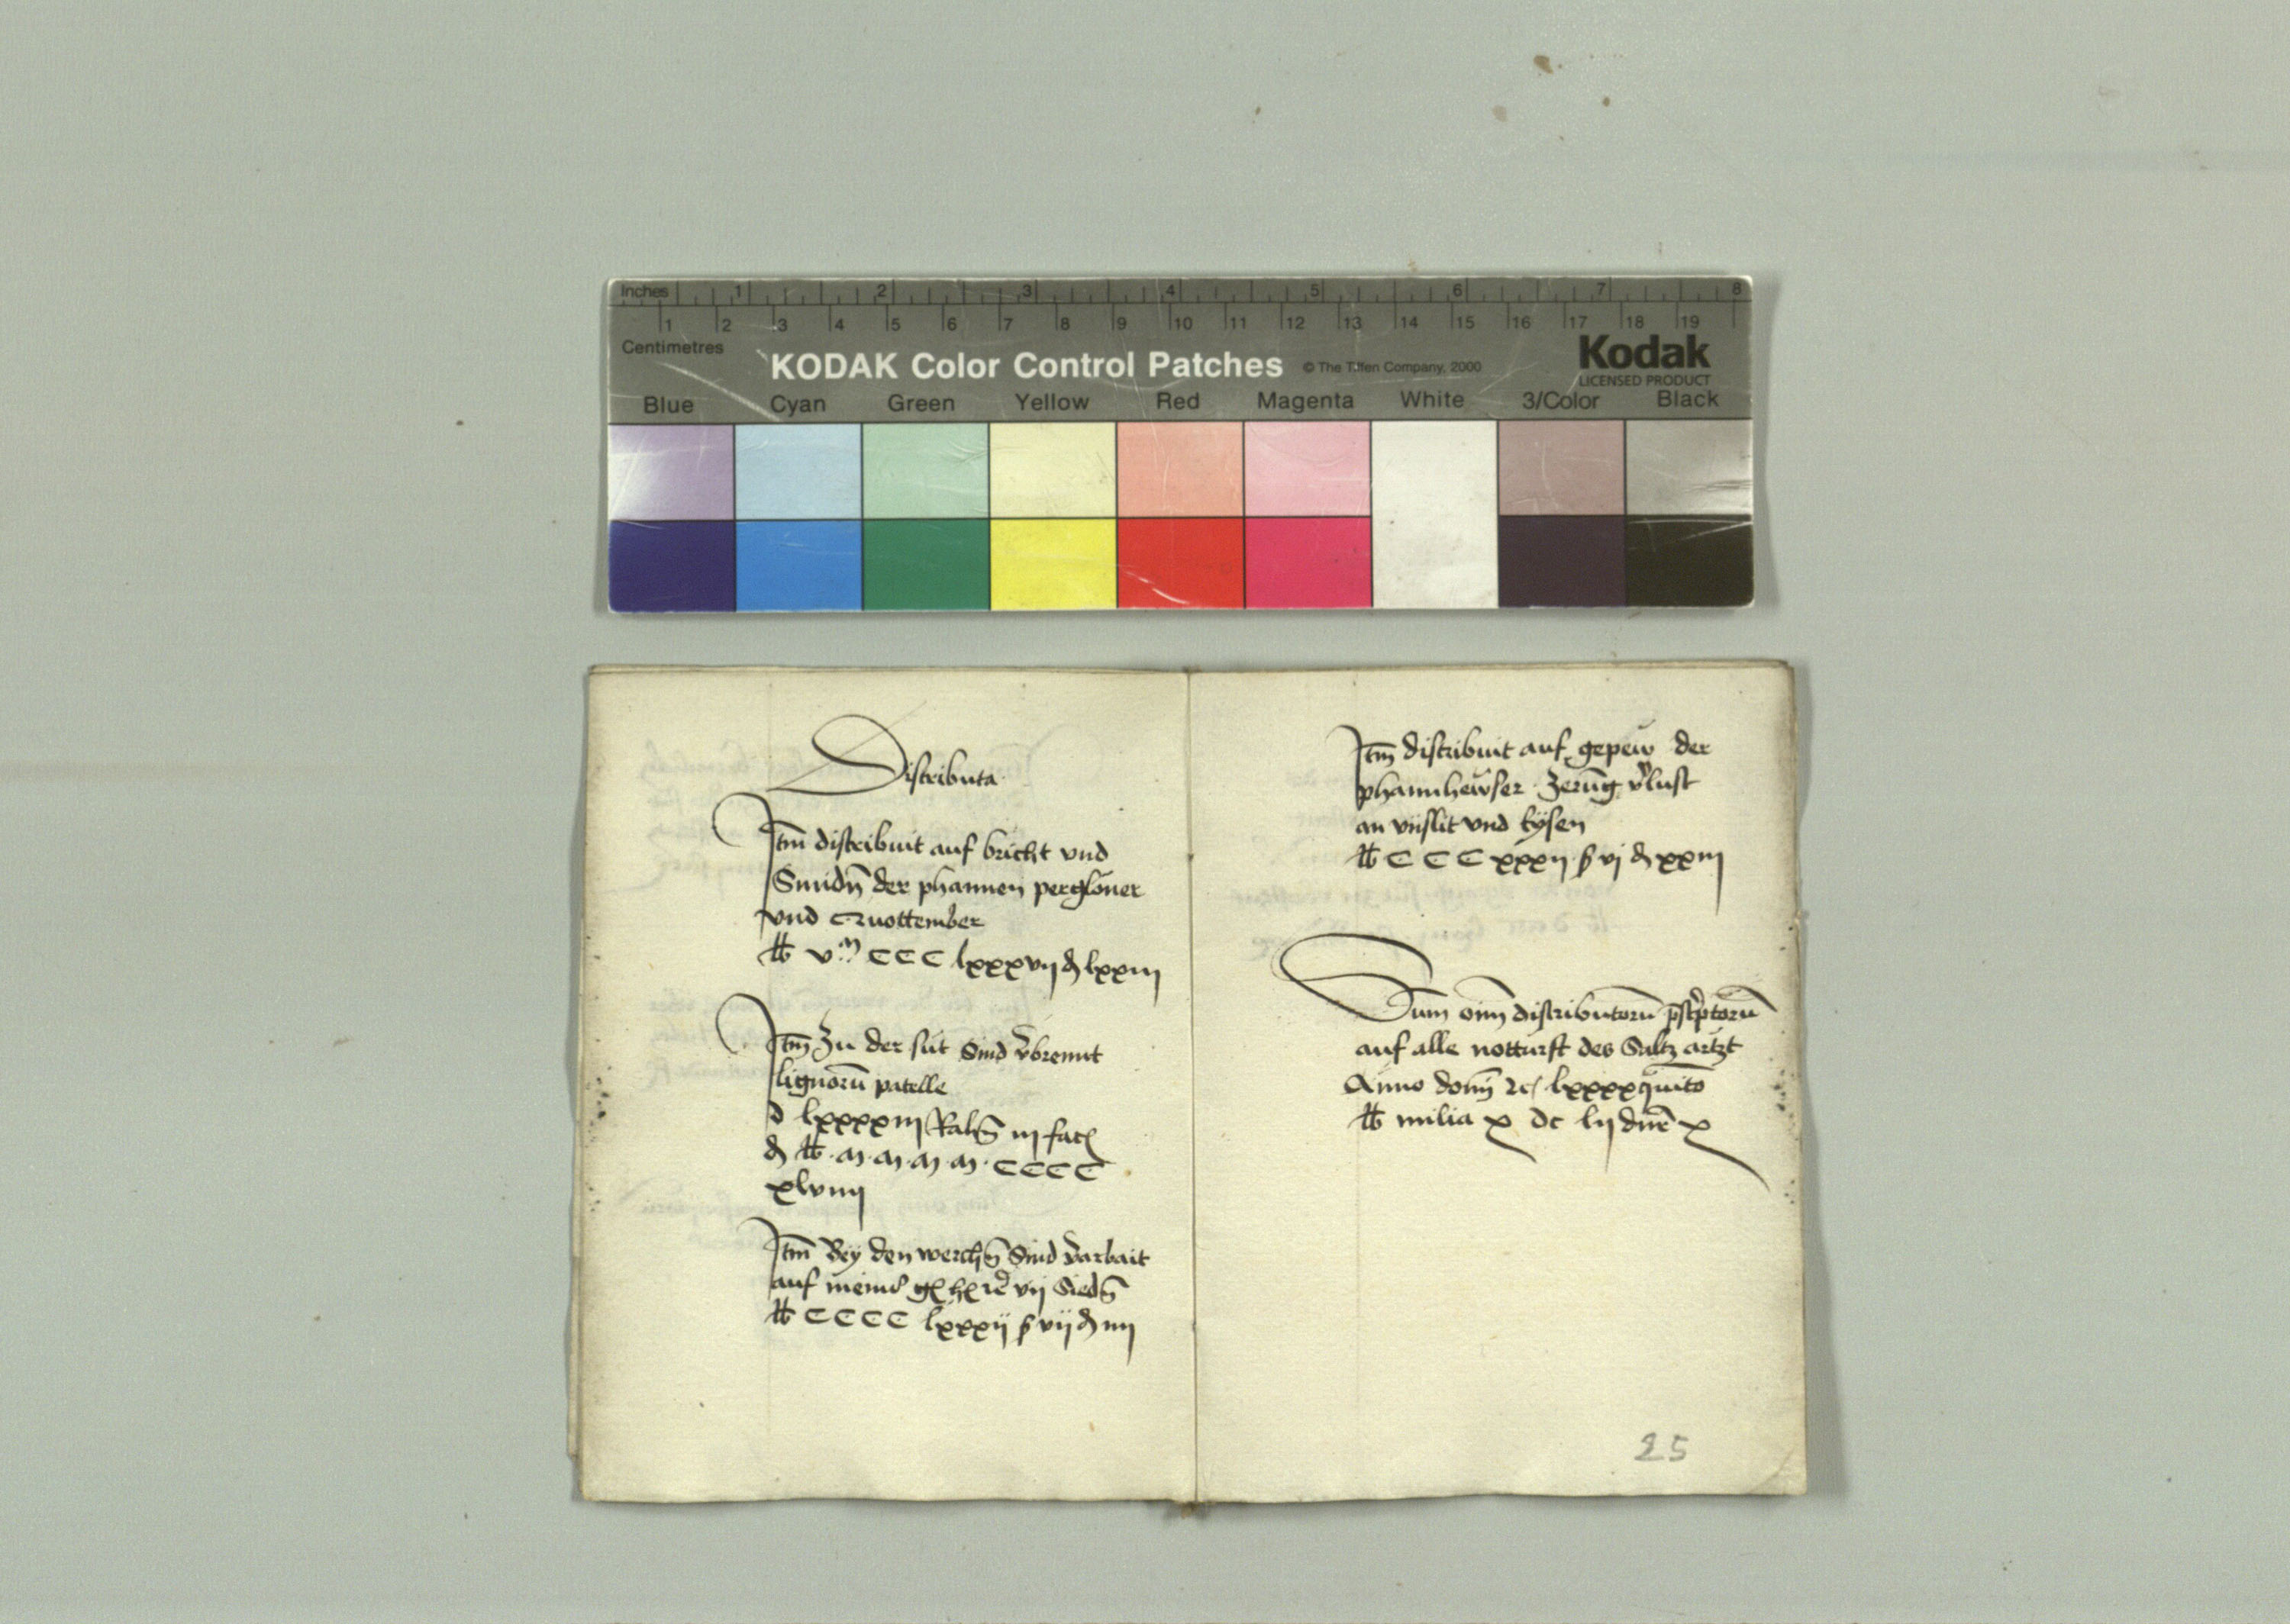 Inches 1 2 3 4 5 6 7 8
1 2 3 4 5 6 7 8 9 10 11 12 13 14 15 16 17 18 19
Centimetres
KODAK Color Control Patches © The Tiffen Company, 2000 Kodak
LICENSED PRODUCT
Blue Cyan Green Yellow Red Magenta White 3/Color Black
Distributa
Itm̄ distribuit auf bricht vnd
Smidn̄ der phannen pergloner
vnd
℔ vᵐ CCC lxxxvij ₰ lxxiij
Itm̄ Zu der sut Sind v̓brennt
lignorū patelle
lxxxxiij iij
₰ ℔ · m · m · m · m · CCCC
xlviiij
Itm̄ Bey den werchn̄ Sind v̓arbait
auf vij Siedn̄
℔ CCCC lxxxij ß vij ₰ iiij
Itm̄ distribuit auf gepew der
phannhewser Zerūg v̓lust
an vnslit vnd eysen
℔ CCC xxxij ß vj ₰ xxiij
Sum om̄ distributorū
auf alle notturft des Saltz artzt
Anno domī ꝛc lxxxxquīto
℔ milia x dc lij x
25